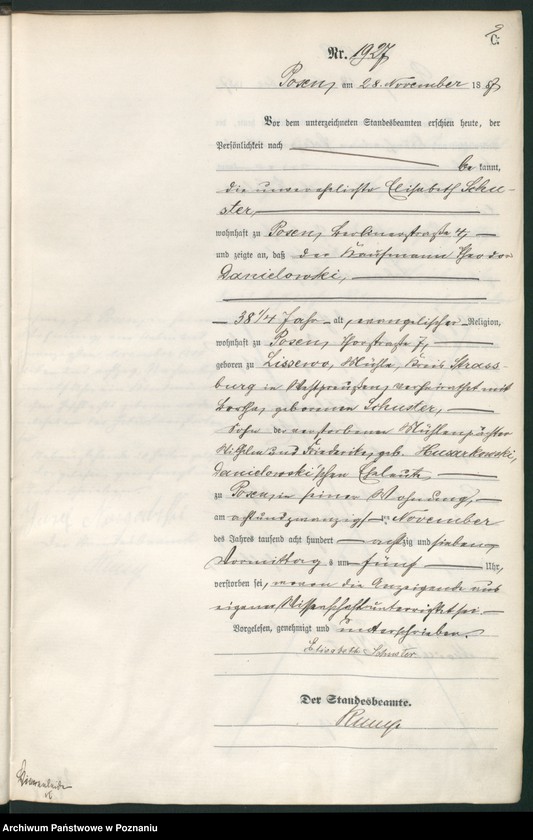 C.
Nr. 1927
Posen, am 28. November 1887
Vor dem unterzeichneten Standesbeamten erschien heute, der
Persönlichkeit nach
be kannt,
die unverehelichte Elisabeth Schu-
ster,
wohnhaft zu Posen,
und zeigte an, daß der Kaufmann Theodor
Danielowski,
38 1/4 Jahr alt, evangelischer Religion,
wohnhaft zu Posen, 7,
geboren zu Lissewo, Mühle, Kreis Strass-
burg in Westpreußen, verheirathet mit
Bertha, geborenen Schuster,
Sohn der verstorbenen Mühlenpächter
Wilhelm und Friederike, geb. Husarkowski,
Danielowski'schen Eheleute,
zu Posen, in seiner Wohnung,
am achtundzwanzigsten November
des Jahres tausend acht hundert achtzig und sieben
Vormittags um fünf Uhr,
verstorben sei, wovon die Anzeigende aus
eigener Wissenschaft unterrichtet sei
Vorgelesen, genehmigt und unterschrieben.
Elisabeth Schuster
Der Standesbeamte.
Archiwum Państwowe w Poznaniu